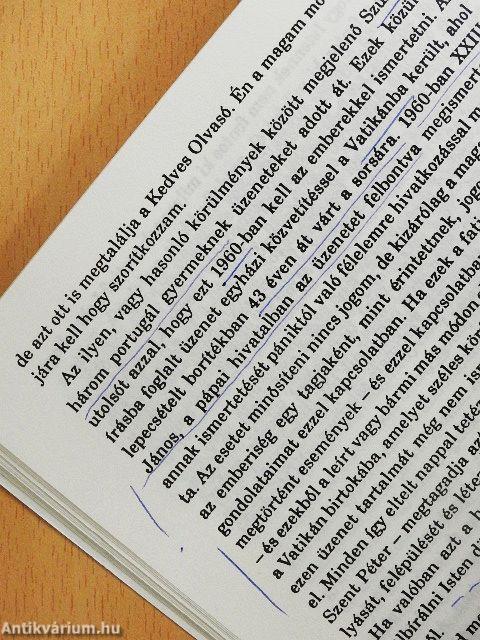 de azt ott is megtalálja a Kedves Olvasó. Én a magam mó
jára kell hogy szorítkozzam.
Az ilyen, vagy hasonló körülmények között megjelenő Szű
három portugál gyermeknek üzeneteket adott át. Ezek közül
utolsót azzal, hogy ezt 1960-ban kell az emberekkel ismertetni. A
írásba foglalt üzenet egyházi közvetítéssel a Vatikánba került, ahol
lepecsételt borítékban 43 éven át várt a sorsára. 1960-ban XXIII
János, a pápai hivatalban az üzenetet felbontva megismert
annak ismertetését, pániktól való félelemre hivatkozással m
ta Az esetet minősíteni nincs jogom, de kizárólag a maga
az emberiség egy tagjaként, mint érintettnek, jogo
gondolataimat ezzel kapcsolatban. Ha ezek a fat
megtörtént események – és ezzel kapcsolatban
– és ezekből a leírt vagy bármi más módon,
a Vatikán birtokába, amelyet széles kör
ezen üzenet tartalmát még nem ism
el. Minden így eltelt nappal teté
Szent Péter – megtagadja az
lyását, felépülését és léte
Ha valóban azt a
bírálni Isten d
Antikvárium.hu